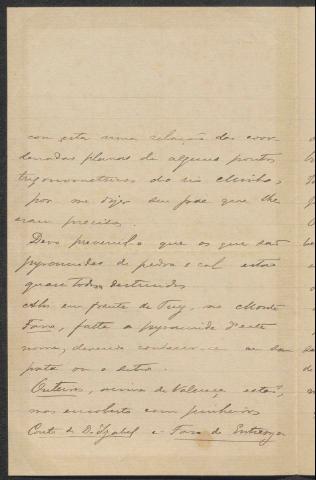 com esta uma relação das coor-
denadas planas de alguns pontos
trigonometricos do rio Minho,
por me dizer ser que lhe
eram precisas.
Devo prevenil-o que os que são
pyramides de pedra e cal estão
quasi todos destruidos
Ahi em frente de Tuy, no Monte
Faro, falta a pyramide d'este
nome, devendo conhecer-se
o sitio.
Outeiro, acima de Valença, está,
mas encoberto com pinheiros
Couto de D. Izabel e Faro de